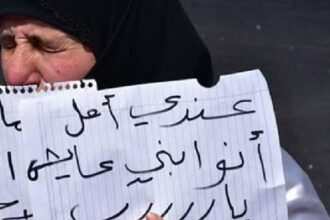 عندي أمل
أنو ابني عايش
يارررررب